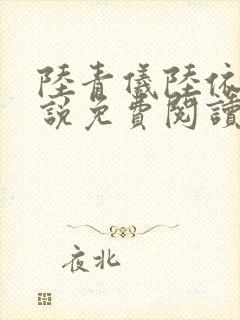 陸青儀陸依
說免費閱讀
夜北